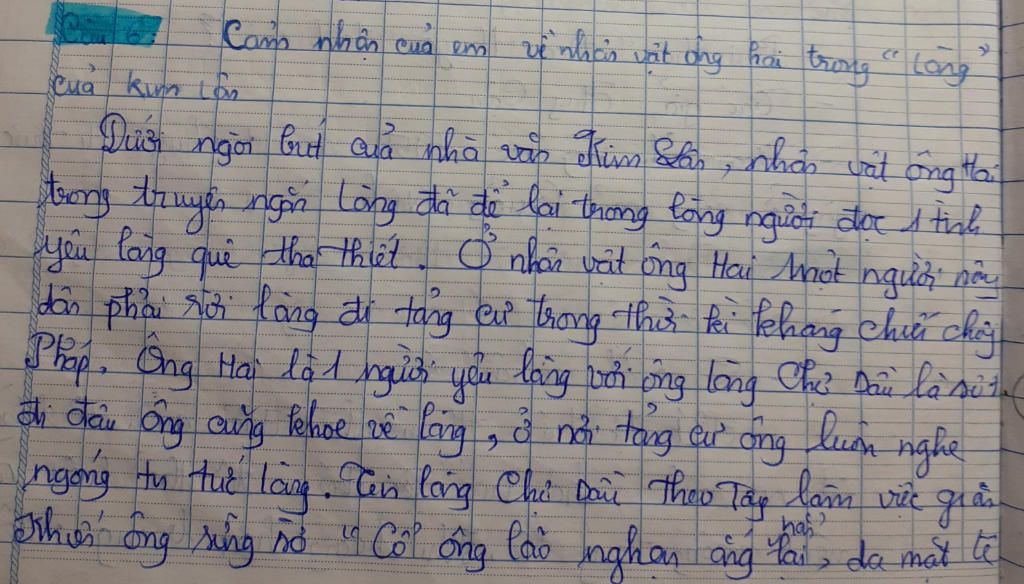 Câu 6: Cảm nhận của em về nhân vật ông hai trong "Làng"
của kim lân
Dưới ngòi bút của nhà văn Kim Lân, nhân vật ông Hai
trong truyện ngắn Làng đã để lại trong lòng người đọc 1 tình
yêu làng quê tha thiết. Ở nhân vật ông Hai một người nông
dân phải rời làng đi tảng cư trong thời kì kháng chiến chống
Pháp. Ông Hai là 1 người yêu làng với ông làng Chợ Dầu là số 1.
đi đâu ông cũng khoe về làng, ở nơi tảng cư ông luôn nghe
ngóng tin tức làng. Tin làng Chợ Dầu theo Tây làm việc gian
khiến ông sững sờ "Cổ ông lão nghẹn ắng hẳn lại, da mặt tê